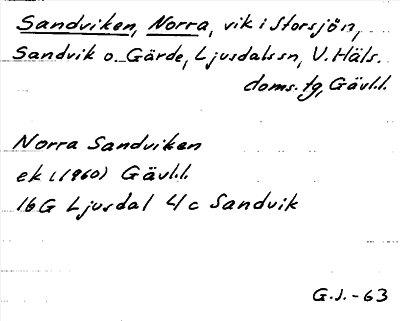 Sandviken, Norra, vik i Storsjön,
Sandvik o. Gärde, Ljusdals sn, V. Häls.
doms. tg, Gävl.l.
Norra Sandviken
ek (1960) Gävl.l.
16G Ljusdal 4c Sandvik
G.J.-63